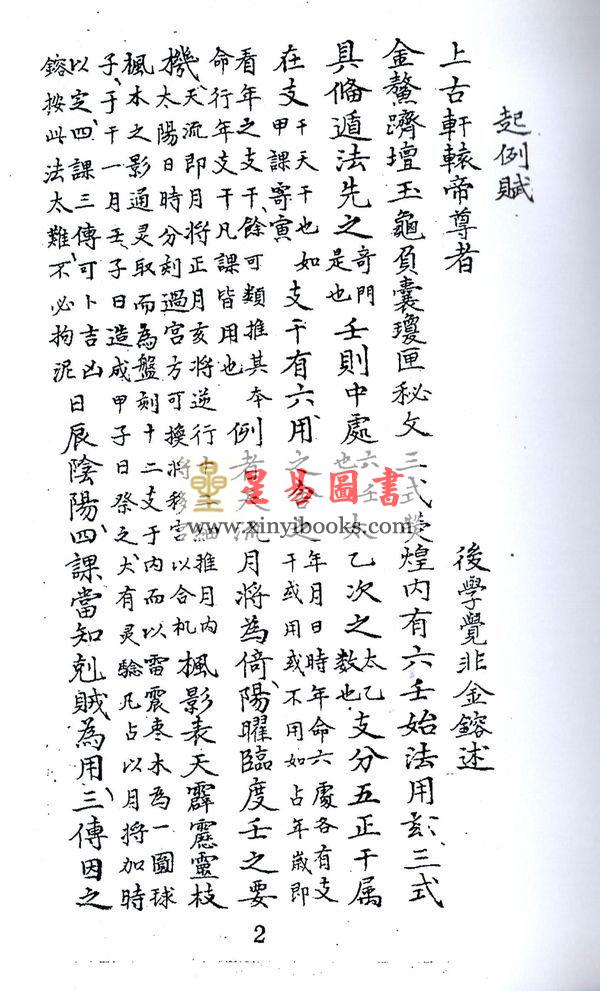 起例賦
後學覺非金鎔述
上古軒轅帝尊者
金鰲躋壇玉龜負囊瓊匣秘文 三式 煌內有六壬始法用彭三式
具脩遁法先之 奇門是也 壬則中處 六壬也 太乙次之 太乙数也 支分五正干属
在支 干天干也如甲課寄寅 支干有六用 之 年月日時年命六處各有支干或用或不用如占年歲即
看年之支干、餘可類推其本命行年支干凡課皆用也 例者天流 月將為倚陽曜臨度壬之要
機 天流即月將正月亥將逆行十二 推月內太陽日時分刻過宮方可換將移宮以合机 楓影表天霹靂靈枝
楓木之影通灵取而為盤刻十二支于内而以雷震枣木為一圓球
子、于十一月壬子日造成甲子日祭之大有灵驗凡占以月將加時
以定四課三傳可卜吉凶
鎔按此法太難不必拘泥
日辰陰陽四課當知剋賊為用三傳因之
星易圖書
www.xinyibooks.com
2